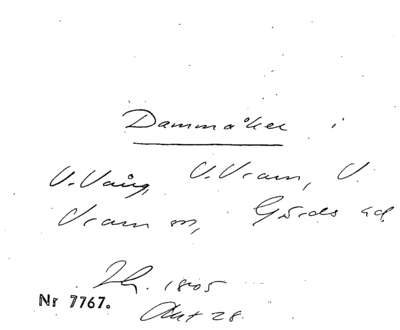 Dammåker i
V. Vång, V. Vram, V.
Vram sn, Gärds hd.
Lh. 1805
Nr 7767.
Akt 28.